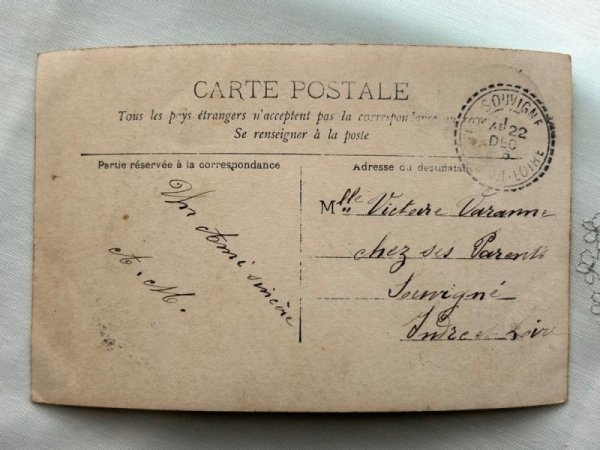 CARTE POSTALE
Tous les pays étrangers n'acceptent pas la correspondance
Se renseigner à la poste
SOUVIGNÉ
22
DEC
LOIRE
Partie réservée à la correspondance
Adresse du destinataire
Un Ami sincère
A. M.
Mlle Victoire Varanne
chez ses Parents
Souvigné
Indre et Loire